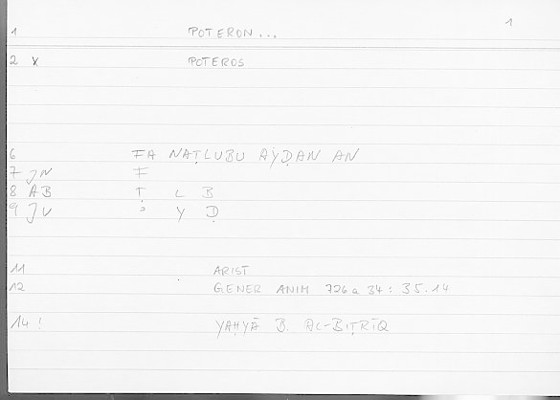 1
1 POTERON...
2 x POTEROS
6 FA NAṬLUBU AYḌAN AN
7 JN F
8 AB Ṭ L B
9 JV ʾ Y Ḍ
11 ARIST
12 GENER ANIM 726a 34 : 35.14
14 ! YAḤYĀ B. AL-BIṬRĪQ